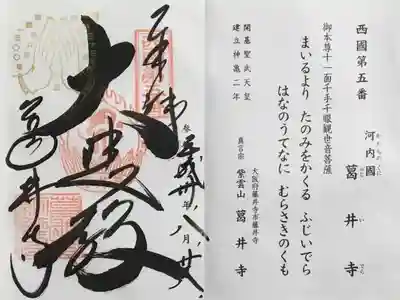 西國第五番
河内國 葛井寺
かわちのくに ふじいでら
御本尊十一面千手千眼観世音菩薩
まいるより たのみをかくる ふじいでら
はなのうてなに むらさきのくも
開基聖武天皇
建立神亀二年
大阪府藤井寺市藤井寺
真言宗 紫雲山 葛井寺
奉拝
平成卅年八月廿八
大悲殿
葛井寺